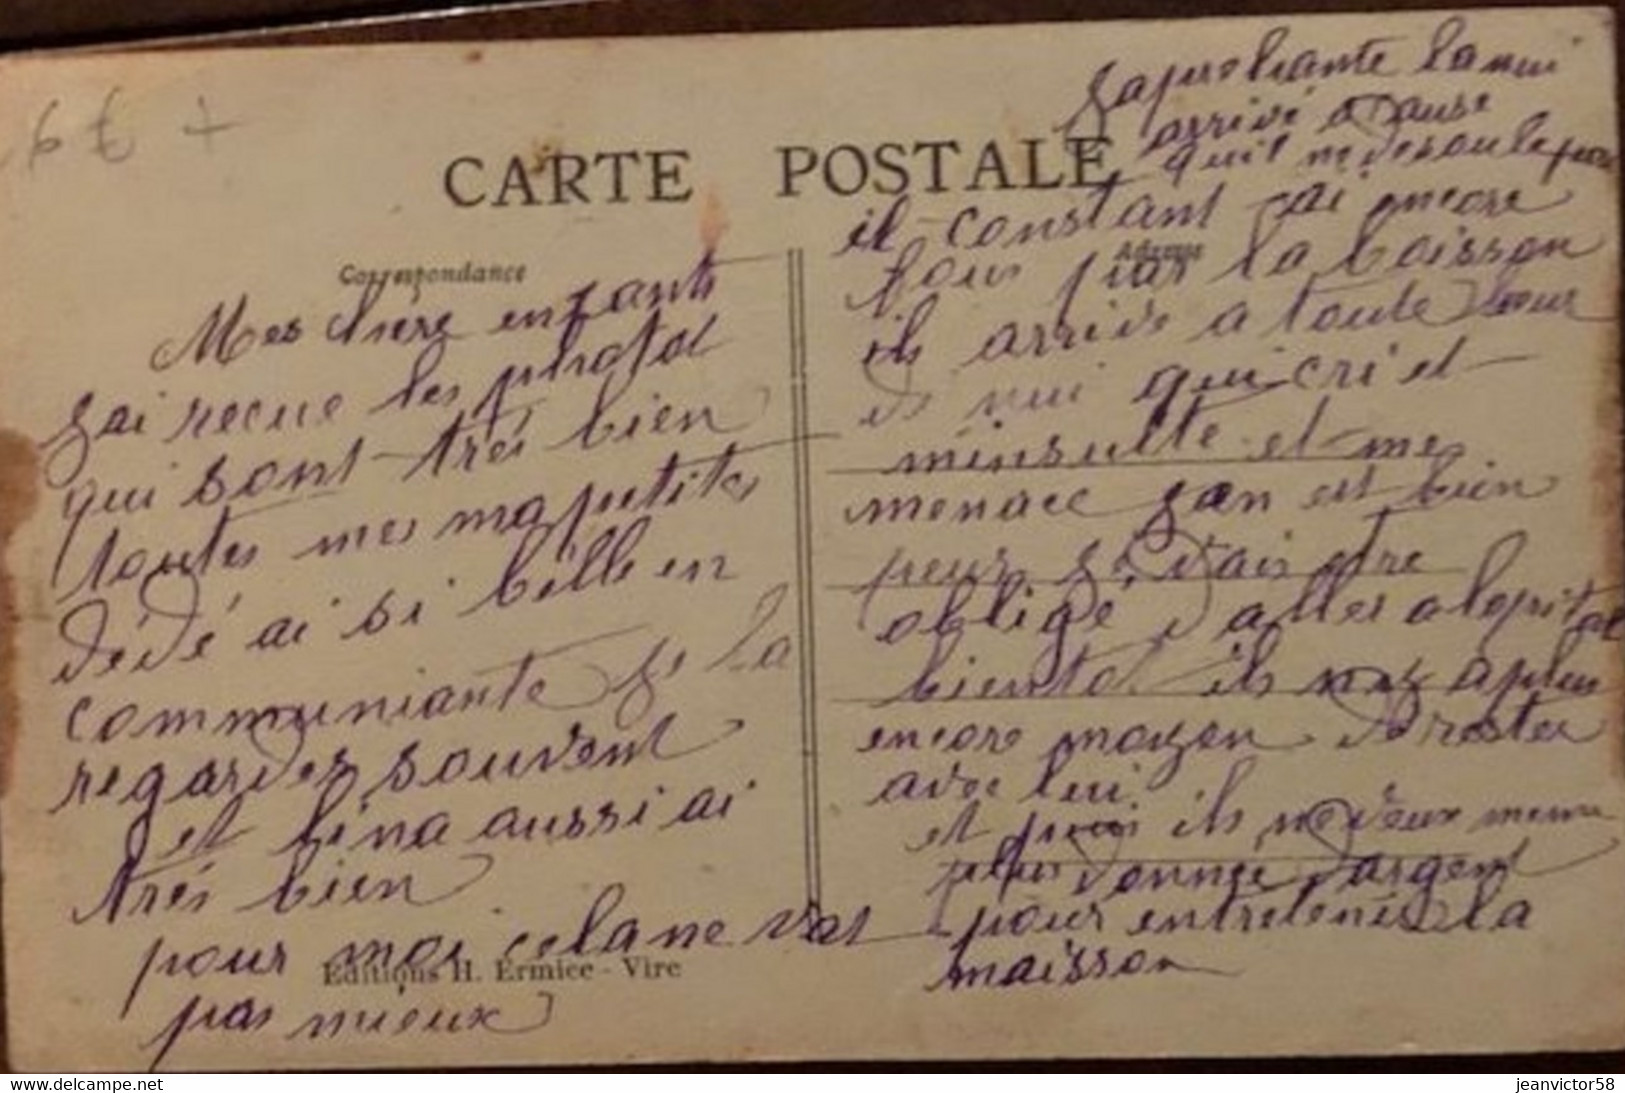 6 € +
CARTE POSTALE
Correspondance
Adresse
Mes chere enfants
gai recue les photol
qui sont trés bien
toutes mes ma petites
dédé ai si belle en
communiante ge la
regardes souvent
et lina aussi ai
trés bien
pour moi celane vas
pas mieux
Editions H. Ermice - Vire
la nui
arrivé a cause
quil
il constant gai encore
par la boisson
ils arrive a toute heur
de nui qui cri et
minsulte et me
menace gan est bien
peur ge vais etre
obligé daller alopital
bientot ils nyz a plus
encore moyen de rester
avec lui
et puis ils ne veux meme
plus donnée dargent
pour entretenir la
maison
www.delcampe.net
jeanvictor58